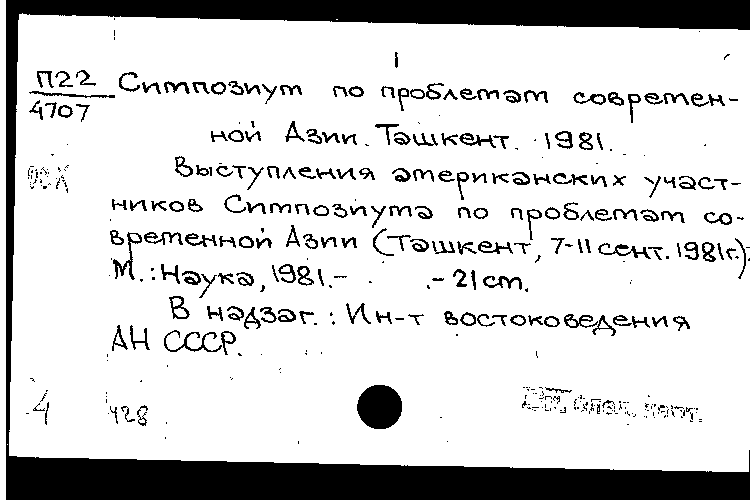 П22 Симпозиум по проблемам современ-
4707
ной Азии. Ташкент. 1981.
Выступления американских участ-
ников Симпозиума по проблемам со-
временной Азии (Ташкент, 7-11 сент. 1981г.).
М.: Наука, 1981.- .- 21 см.
В надзаг.: Ин-т востоковедения
АН СССР.
4 428
См. след. карт.